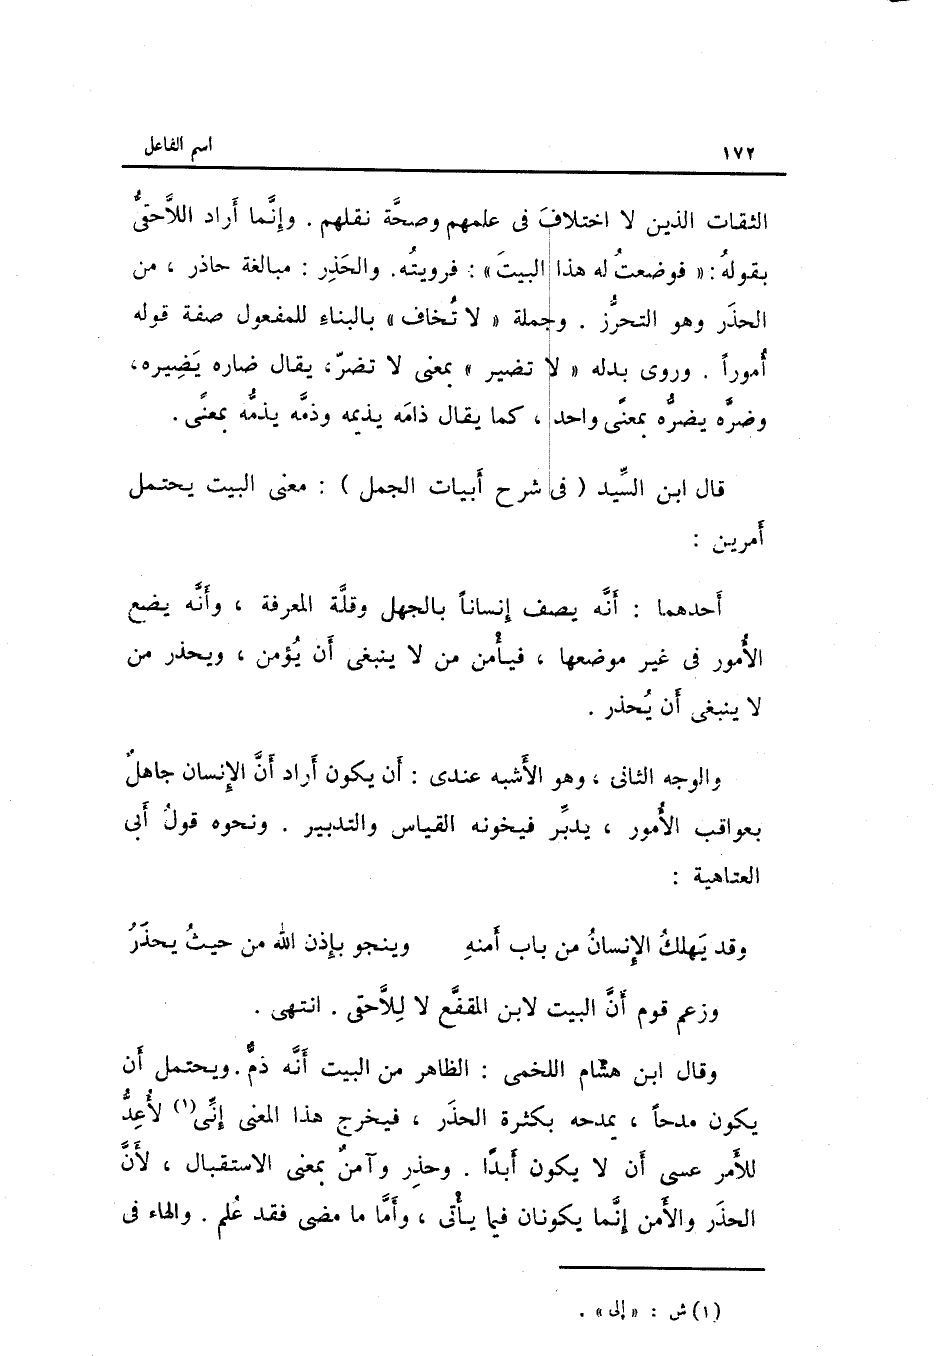 ١٧٢ اسم الفاعل
الثقات الذين لا اختلافَ فى علمهم وصحَّة نقلهم . وإنَّما أراد اللاَّحقىُّ
بقولهُ : « فوضعتُ له هذا البيتَ » : فرويتُه. والحَذِر : مبالغة حاذر ، من
الحذَر وهو التحرُّز . وجملة « لا تُخاف » بالبناء للمفعول صفة قوله
أُموراً . وروى بدله « لا تضير » بمعنى لا تضرّ، يقال ضاره يَضِيره،
وضرَّه يضرُّه بمعنًى واحد ، كما يقال ذامَه يذيمه وذمَّه يذمُّه بمعنًى.
قال ابن السِّيد ( فى شرح أَبيات الجمل ) : معنى البيت يحتمل
أَمرين :
أَحدهما : أَنَّه يصف إنساناً بالجهل وقلَّة المعرفة ، وأَنَّه يضع
الأُمور فى غير موضعها ، فيأْمن من لا ينبغى أَن يُؤمن ، ويحذر من
لا ينبغى أَن يُحذر .
والوجه الثانى ، وهو الأَشبه عندى : أَن يكون أَراد أَنَّ الإنسان جاهلٌ
بعواقب الأُمور ، يدبِّر فيخونه القياس والتدبير . ونحوه قولُ أَبى
العتاهية :
وقد يَهلكُ الإنسانُ من باب أَمنهِ وينجو بإذن الله من حيثُ يحذَرُ
وزعم قوم أَنَّ البيت لابن المقفَّع لا لِلاَّحقى . انتهى .
وقال ابن هشام اللخمى : الظاهر من البيت أَنَّه ذمٌّ. ويحتمل أَن
يكون مدحاً ، يمدحه بكثرة الحذَر ، فيخرج هذا المعنى إنِّى(١) لأُعِدُّ
للأَمر عسى أَن لا يكون أَبدًا . وحذِر وآمنٌ بمعنى الاستقبال ، لأَنَّ
الحذَر والأَمن إنَّما يكونان فيما يأْتى ، وأَمَّا ما مضى فقد عُلم . والهاء فى
(١) ش : « إلى » .